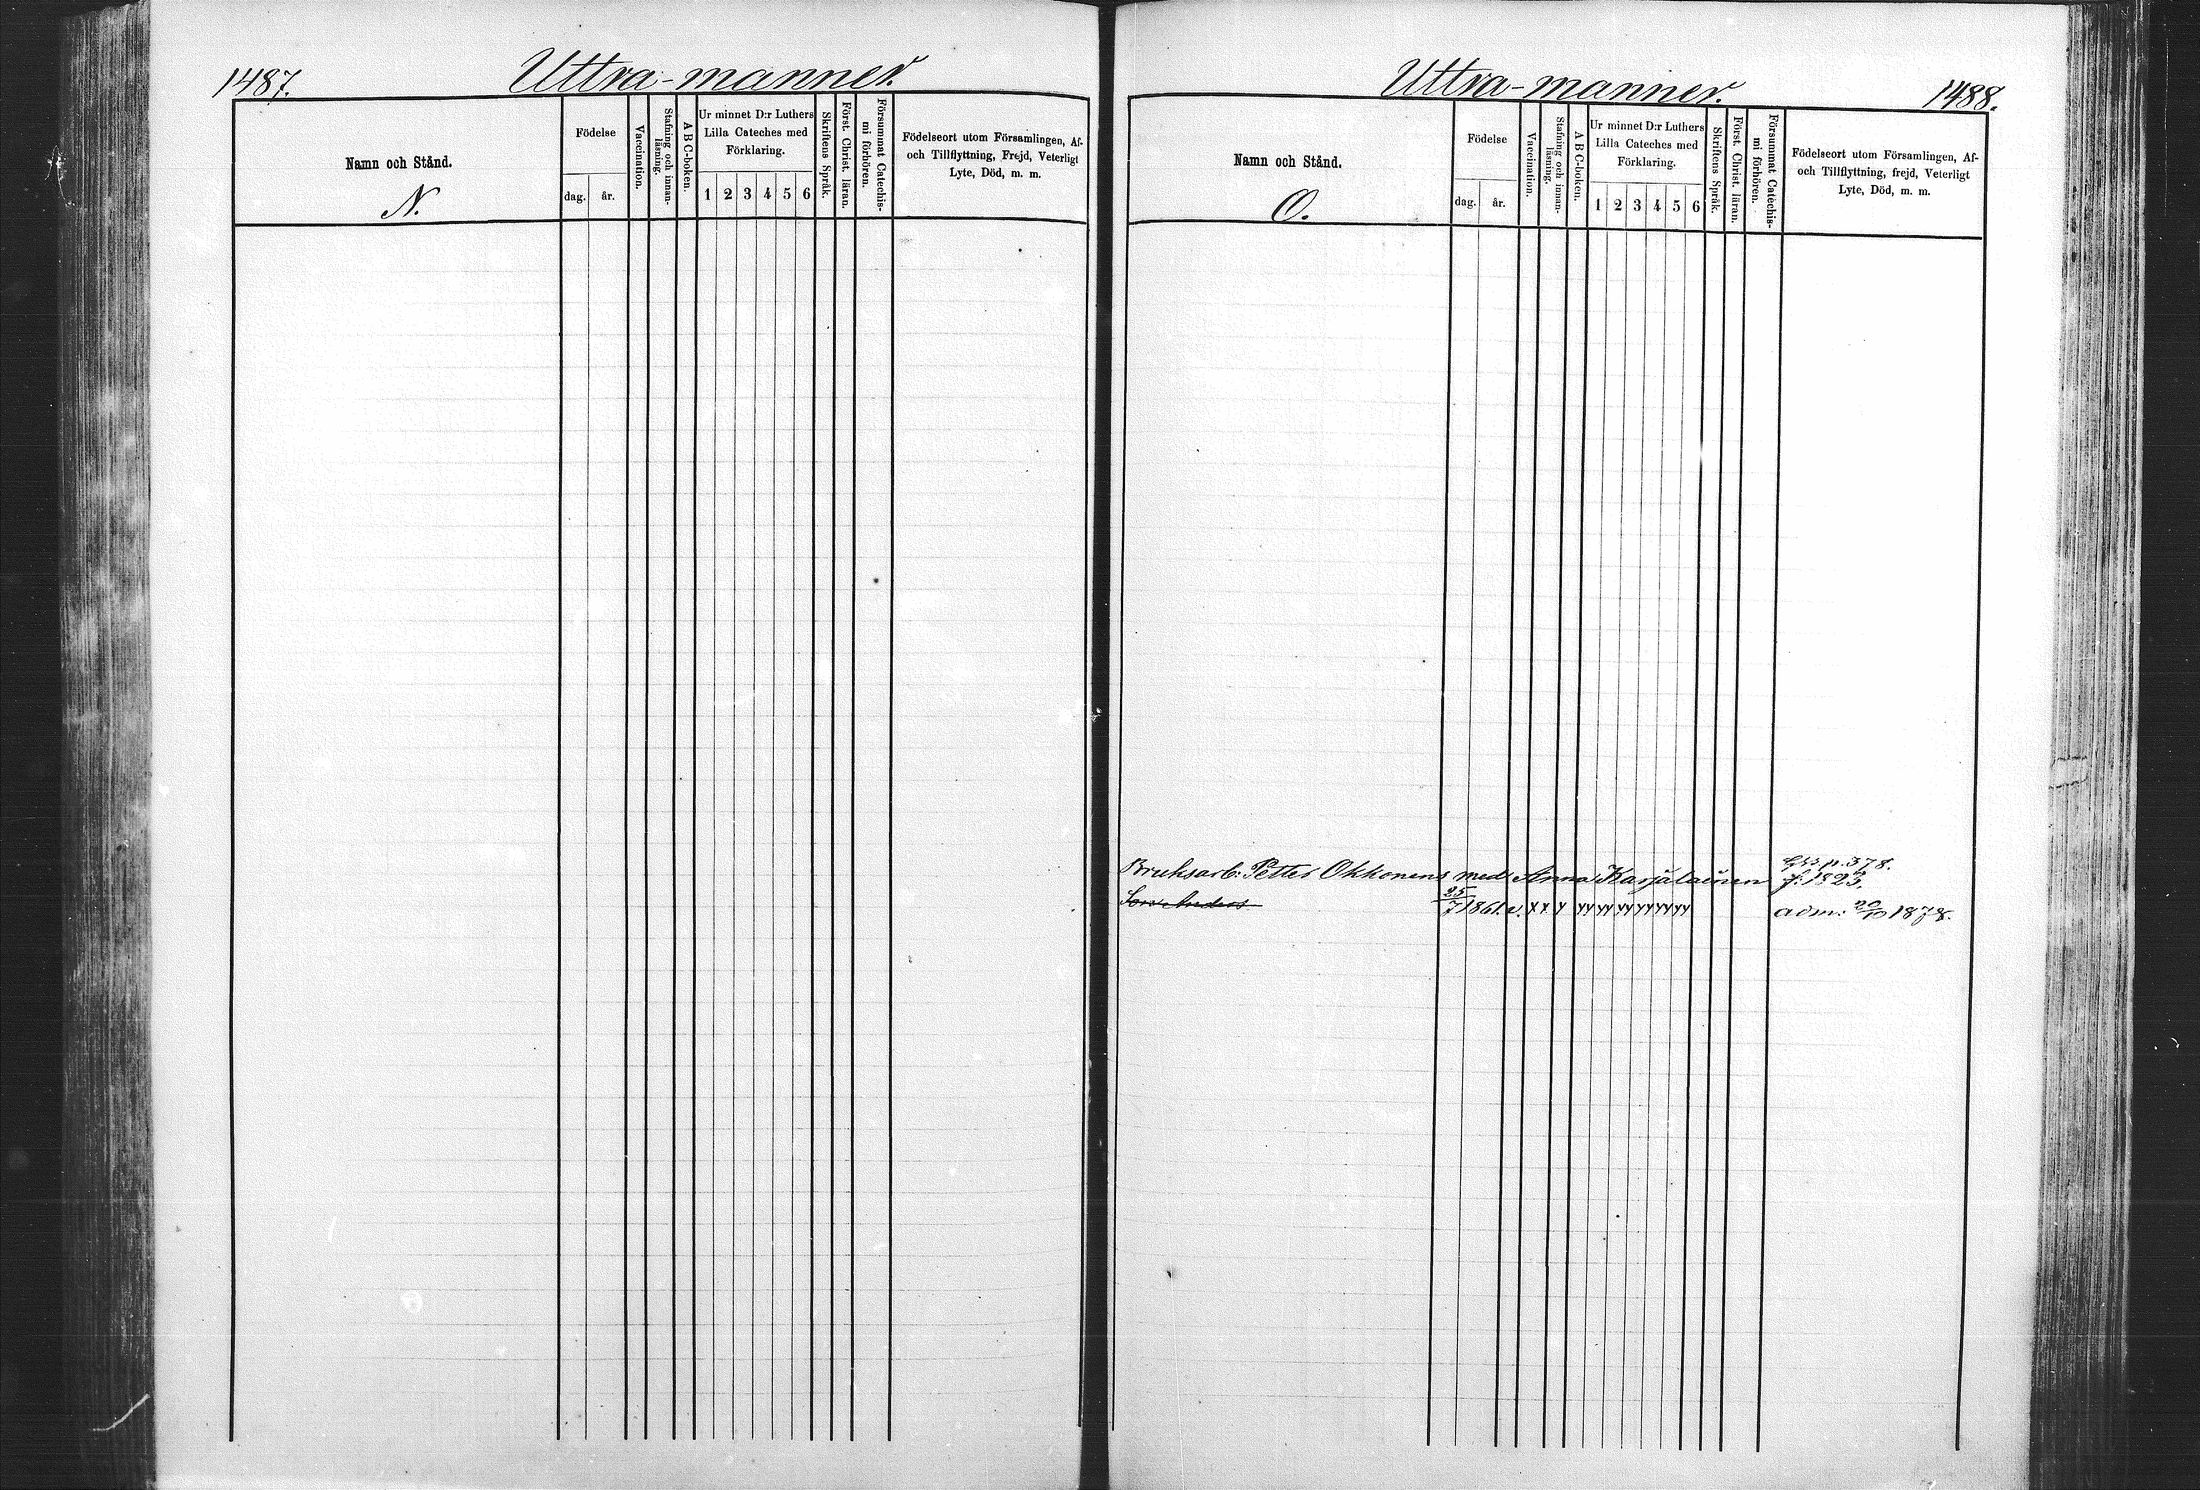 1487.
Uttra-manner.
Namn och Stånd.
N.
Födelse
dag. år.
Vaccination.
Stafning och innan-
läsning.
A B C-boken.
Ur minnet D:r Luthers
Lilla Cateches med
Förklaring.
1 2 3 4 5 6
Skriftens Språk.
Först. Christ. läran.
Försummat Catechis-
mi förhören.
Födelseort utom Församlingen, Af-
och Tillflyttning, Frejd, Veterligt
Lyte, Död, m. m.
Uttra-manner.
1488.
Namn och Stånd.
O.
Födelse
dag. år.
Vaccination.
Stafning och innan-
läsning.
A B C-boken.
Ur minnet D:r Luthers
Lilla Cateches med
Förklaring.
1 2 3 4 5 6
Skriftens Språk.
Först. Christ. läran.
Försummat Catechis-
mi förhören.
Födelseort utom Församlingen, Af-
och Tillflyttning, frejd, Veterligt
Lyte, Död, m. m.
p. 378.
Bruksarb: Petter Okkonens med Anna Karjalainen f. 1823.
Son Anders 25/7 1861. v. x x y yy yy yy yy yy yy adm: 20/10 1878.